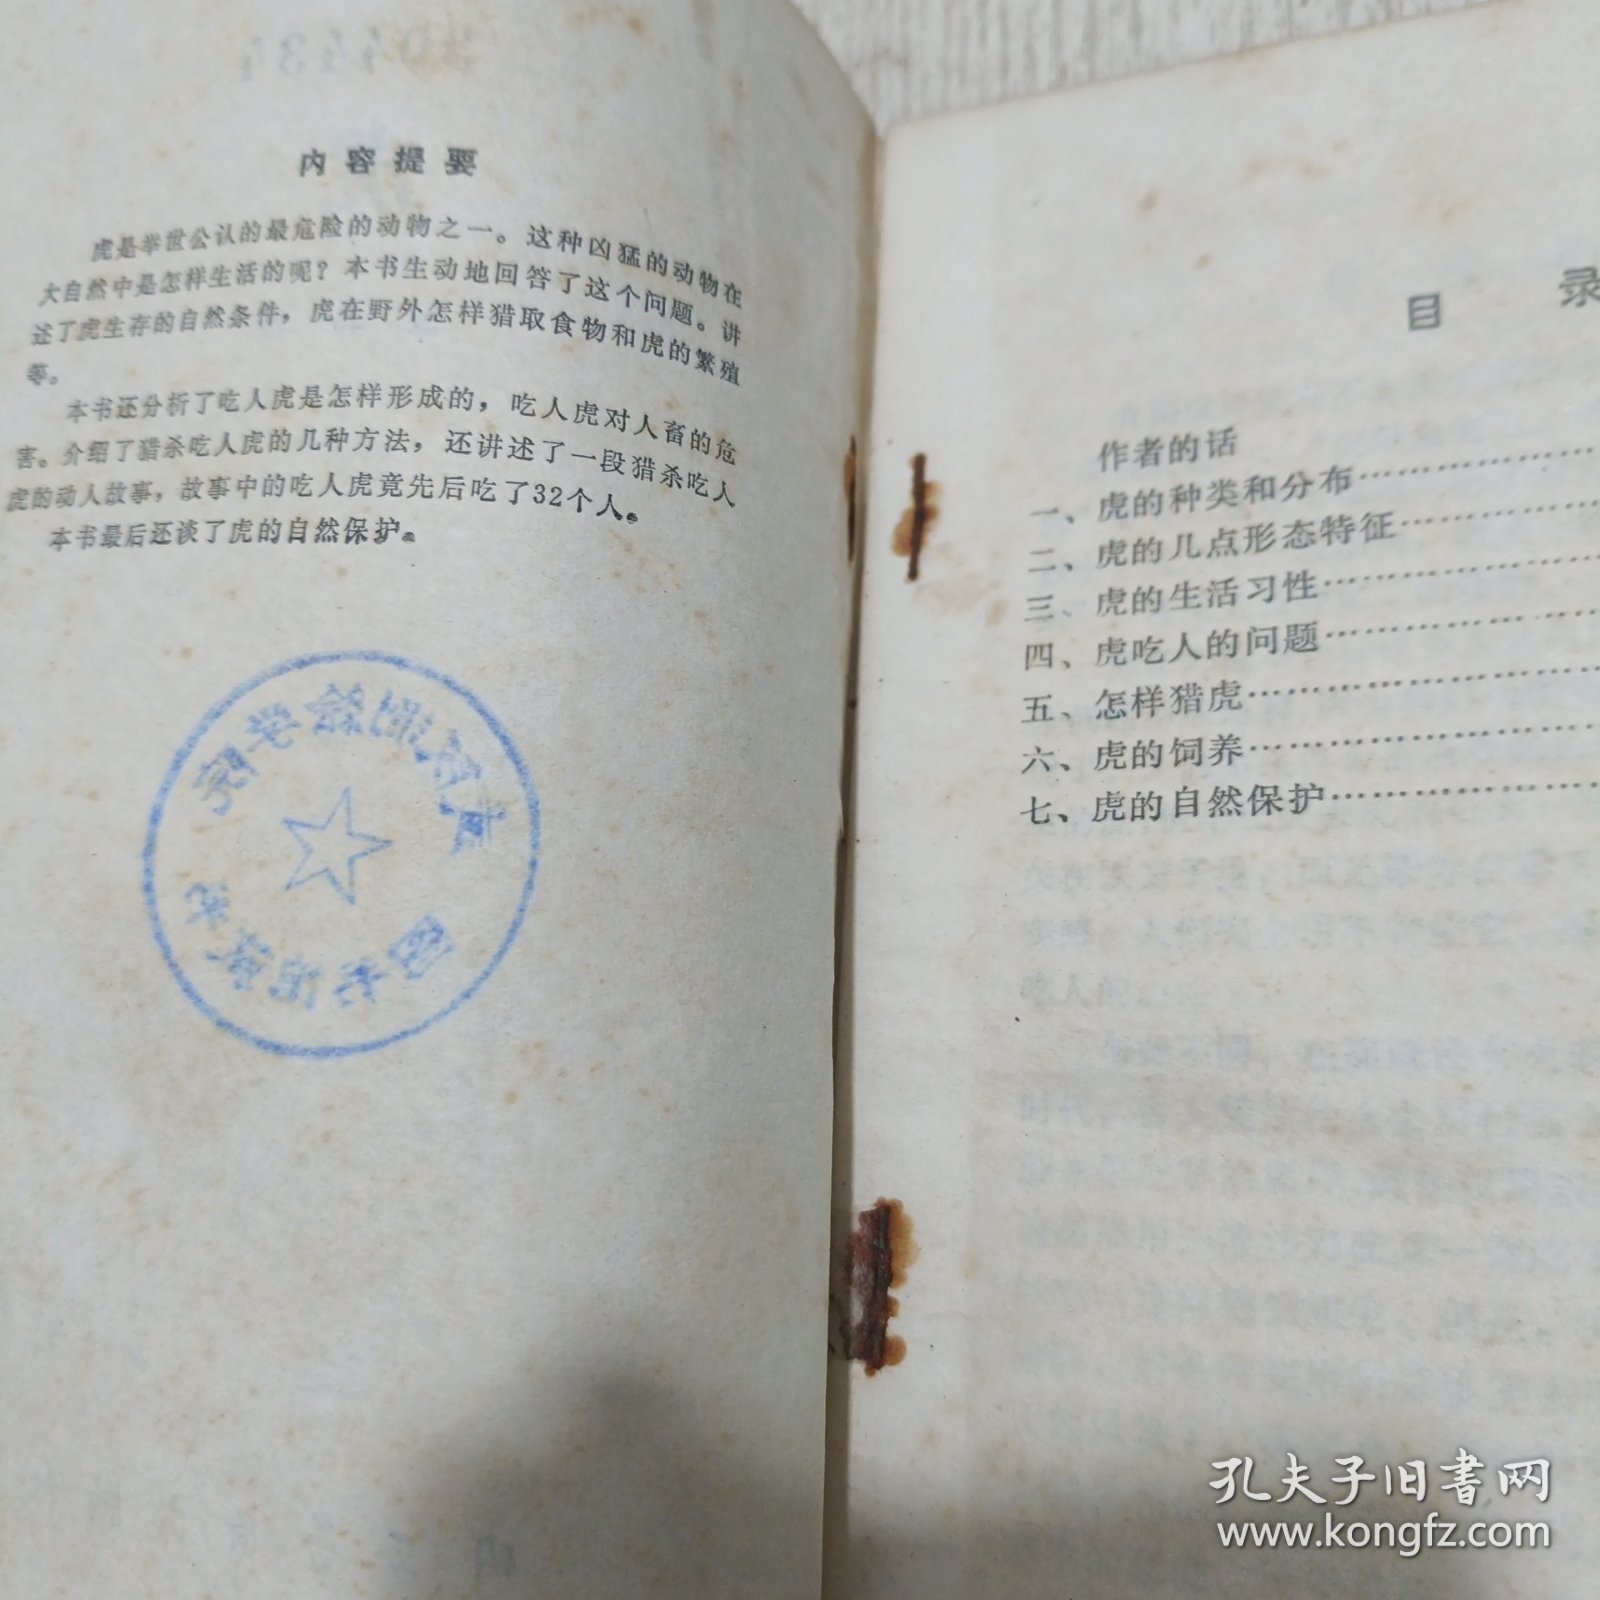 内容提要
虎是举世公认的最危险的动物之一。这种凶猛的动物在
大自然中是怎样生活的呢？本书生动地回答了这个问题。讲
述了虎生存的自然条件，虎在野外怎样猎取食物和虎的繁殖
等。
本书还分析了吃人虎是怎样形成的，吃人虎对人畜的危
害。介绍了猎杀吃人虎的几种方法，还讲述了一段猎杀吃人
虎的动人故事，故事中的吃人虎竟先后吃了32个人。
本书最后还谈了虎的自然保护。
目录
作者的话
一、虎的种类和分布……………………
二、虎的几点形态特征…………………
三、虎的生活习性………………………
四、虎吃人的问题………………………
五、怎样猎虎……………………………
六、虎的饲养……………………………
七、虎的自然保护………………………
孔夫子旧书网
www.kongfz.com